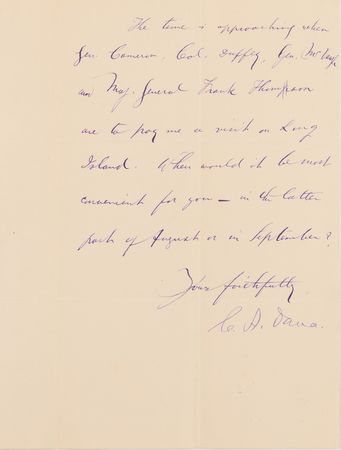 The time is approaching when
Gen. Cameron, Col. Duffey, Gen.
and Maj. General Frank Thompson
are to pay me a visit on Long
Island. When would it be most
convenient for you — in the latter
part of August or in September?
Yours faithfully
C. A. Dana.